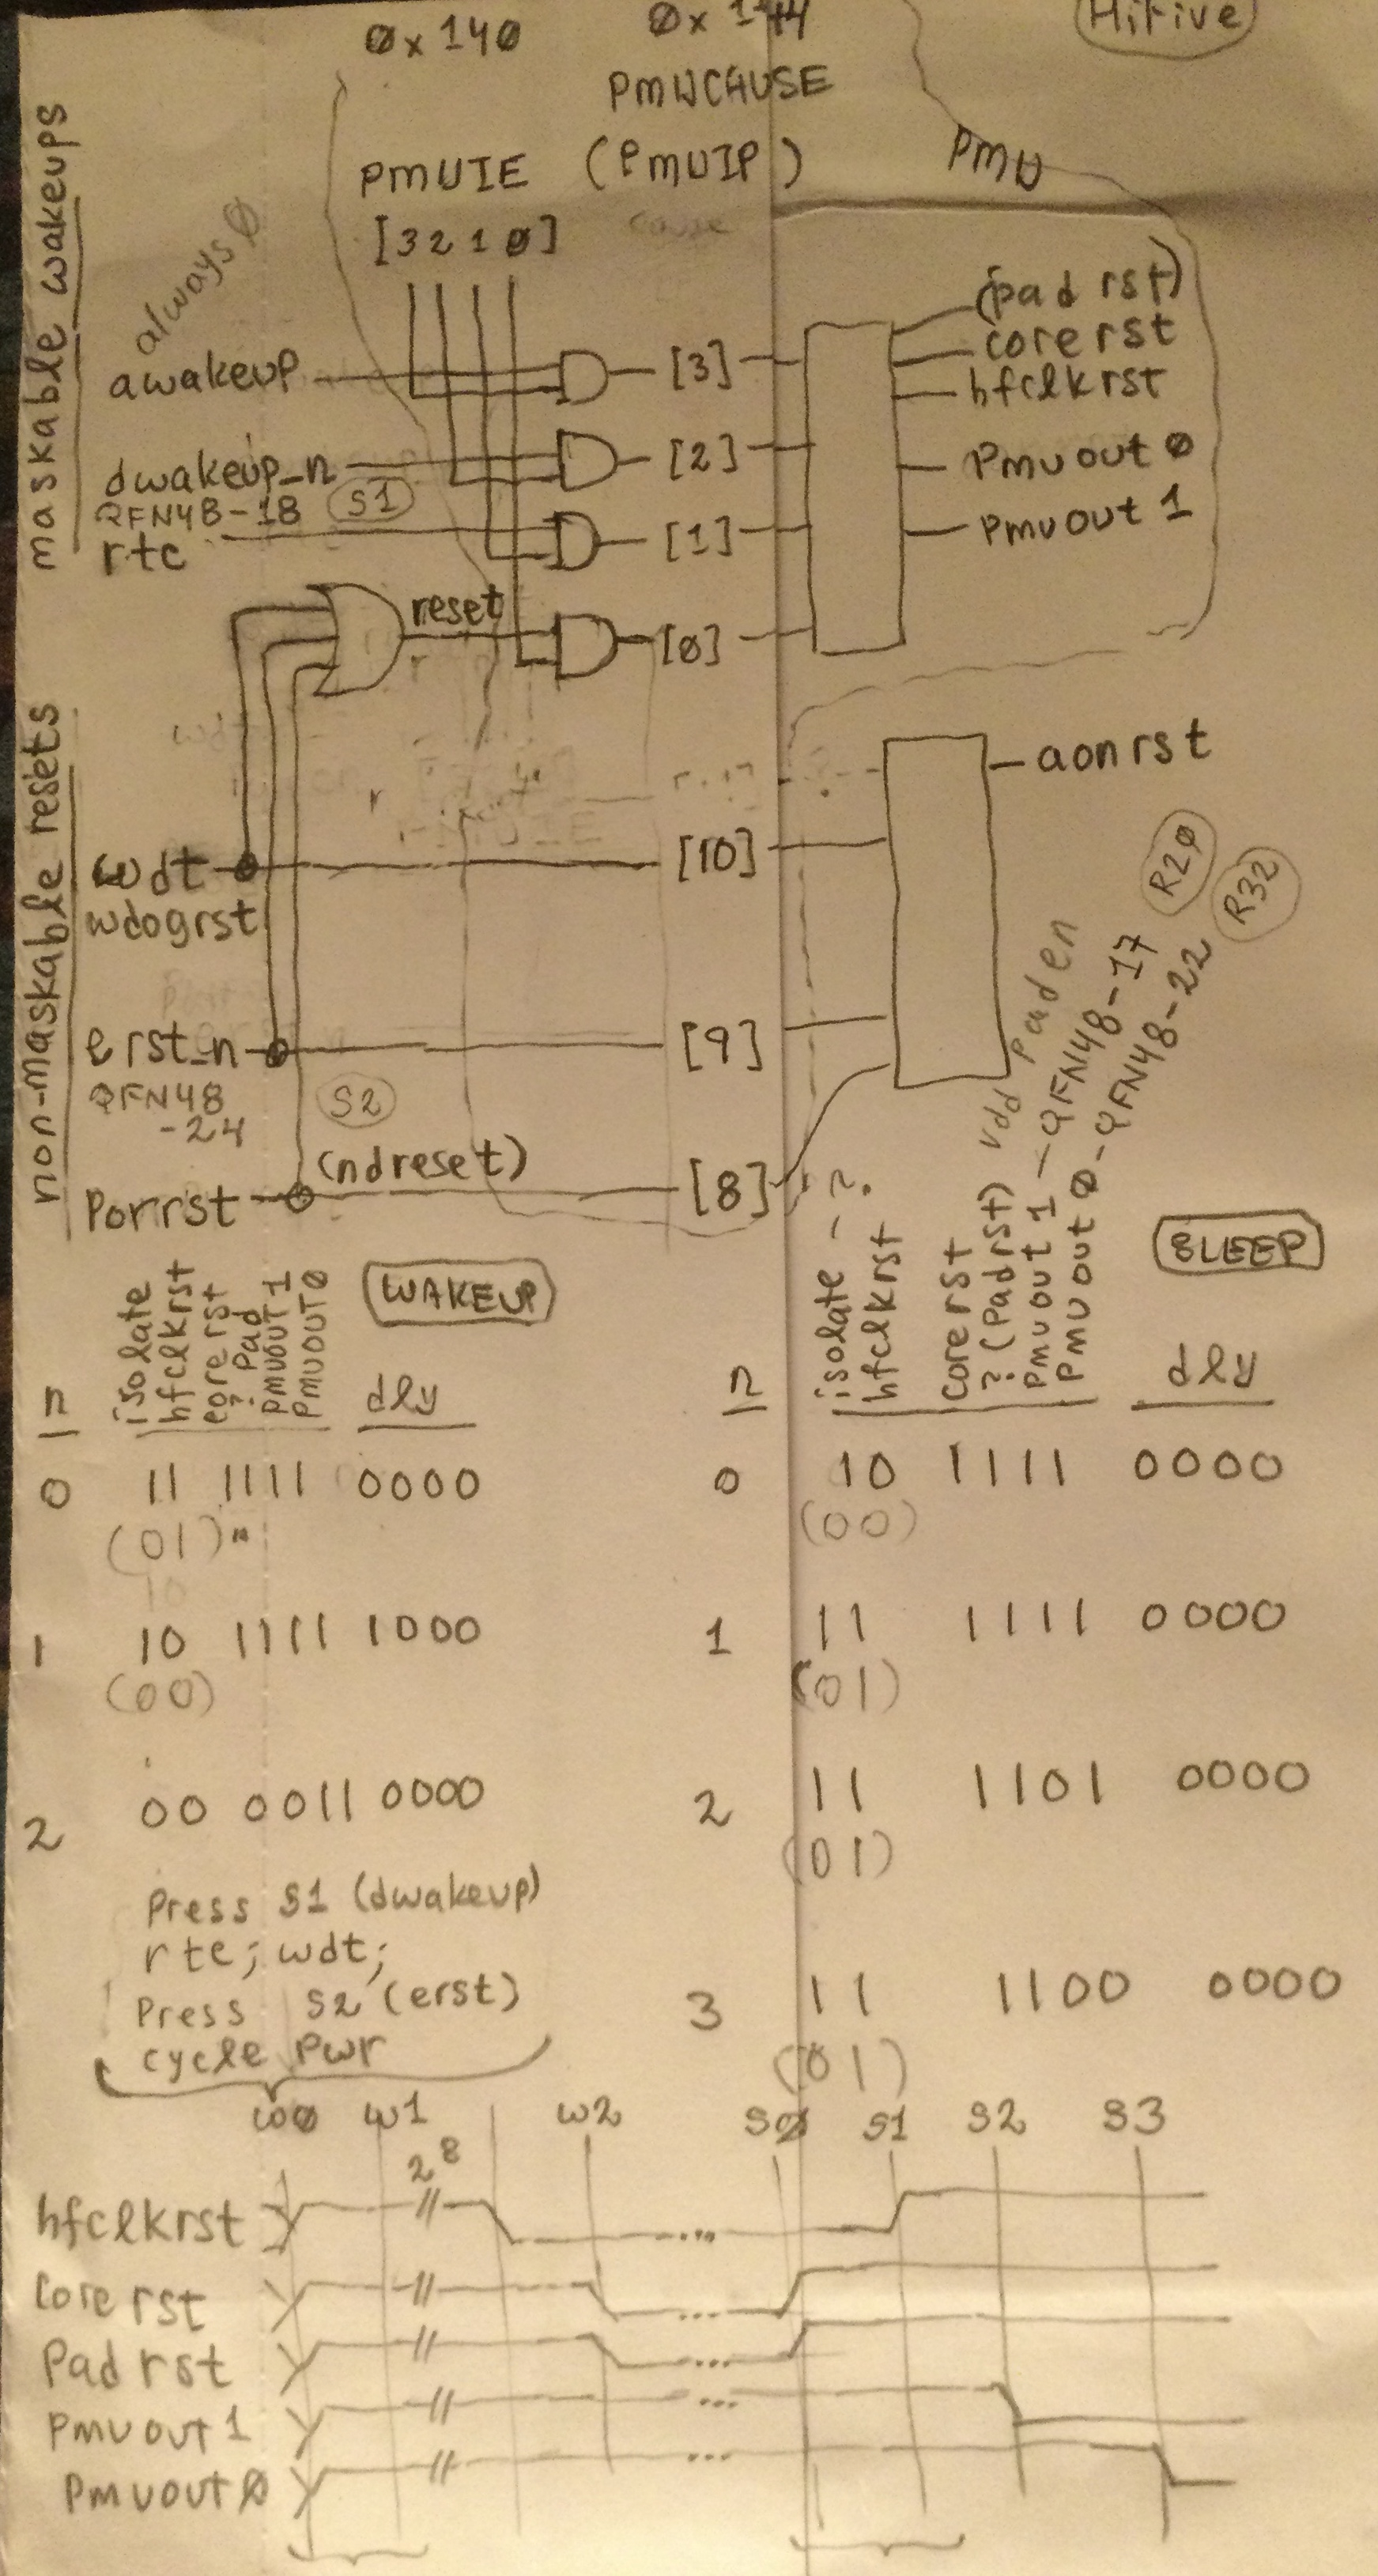 0x140 0x144 Hifive
PMWCAUSE
PMUIE (PMUIP) PMU
[3210] cause
maskable wakeups
always 0
awakeup [3]
dwakeup_n [2]
QFN48-18 S1
rtc [1]
reset [0]
(pad rst)
core rst
hfclkrst
Pmuout 0
pmuout 1
non-maskable resets
aonrst
wdt [10]
wdogrst
erst_n [9]
QFN48 S2
-24
(ndreset)
Porrst [8]
vdd Paden
R20
R32
WAKEUP
n
isolate
hfclkrst
corerst
? Pad
PMUOUT1
PMUOUT0
dly
0 11 1111 0000
(01)"
1 10 1111 1000
(00)
2 00 0011 0000
SLEEP
n
isolate - ?
hfclkrst
corerst
? (Padrst)
pmuout 1 - QFN48-17
pmuout 0 - QFN48-22
dly
0 10 1111 0000
(00)
1 11 1111 0000
(01)
2 11 1101 0000
(01)
3 11 1100 0000
(01)
Press S1 (dwakeup)
rtc; wdt;
Press S2 (erst)
cycle Pwr
w0 w1 w2 S0 S1 S2 S3
2^8
hfclkrst ...
Core rst ...
Pad rst ...
Pmuout 1 ...
Pmuout 0 ...